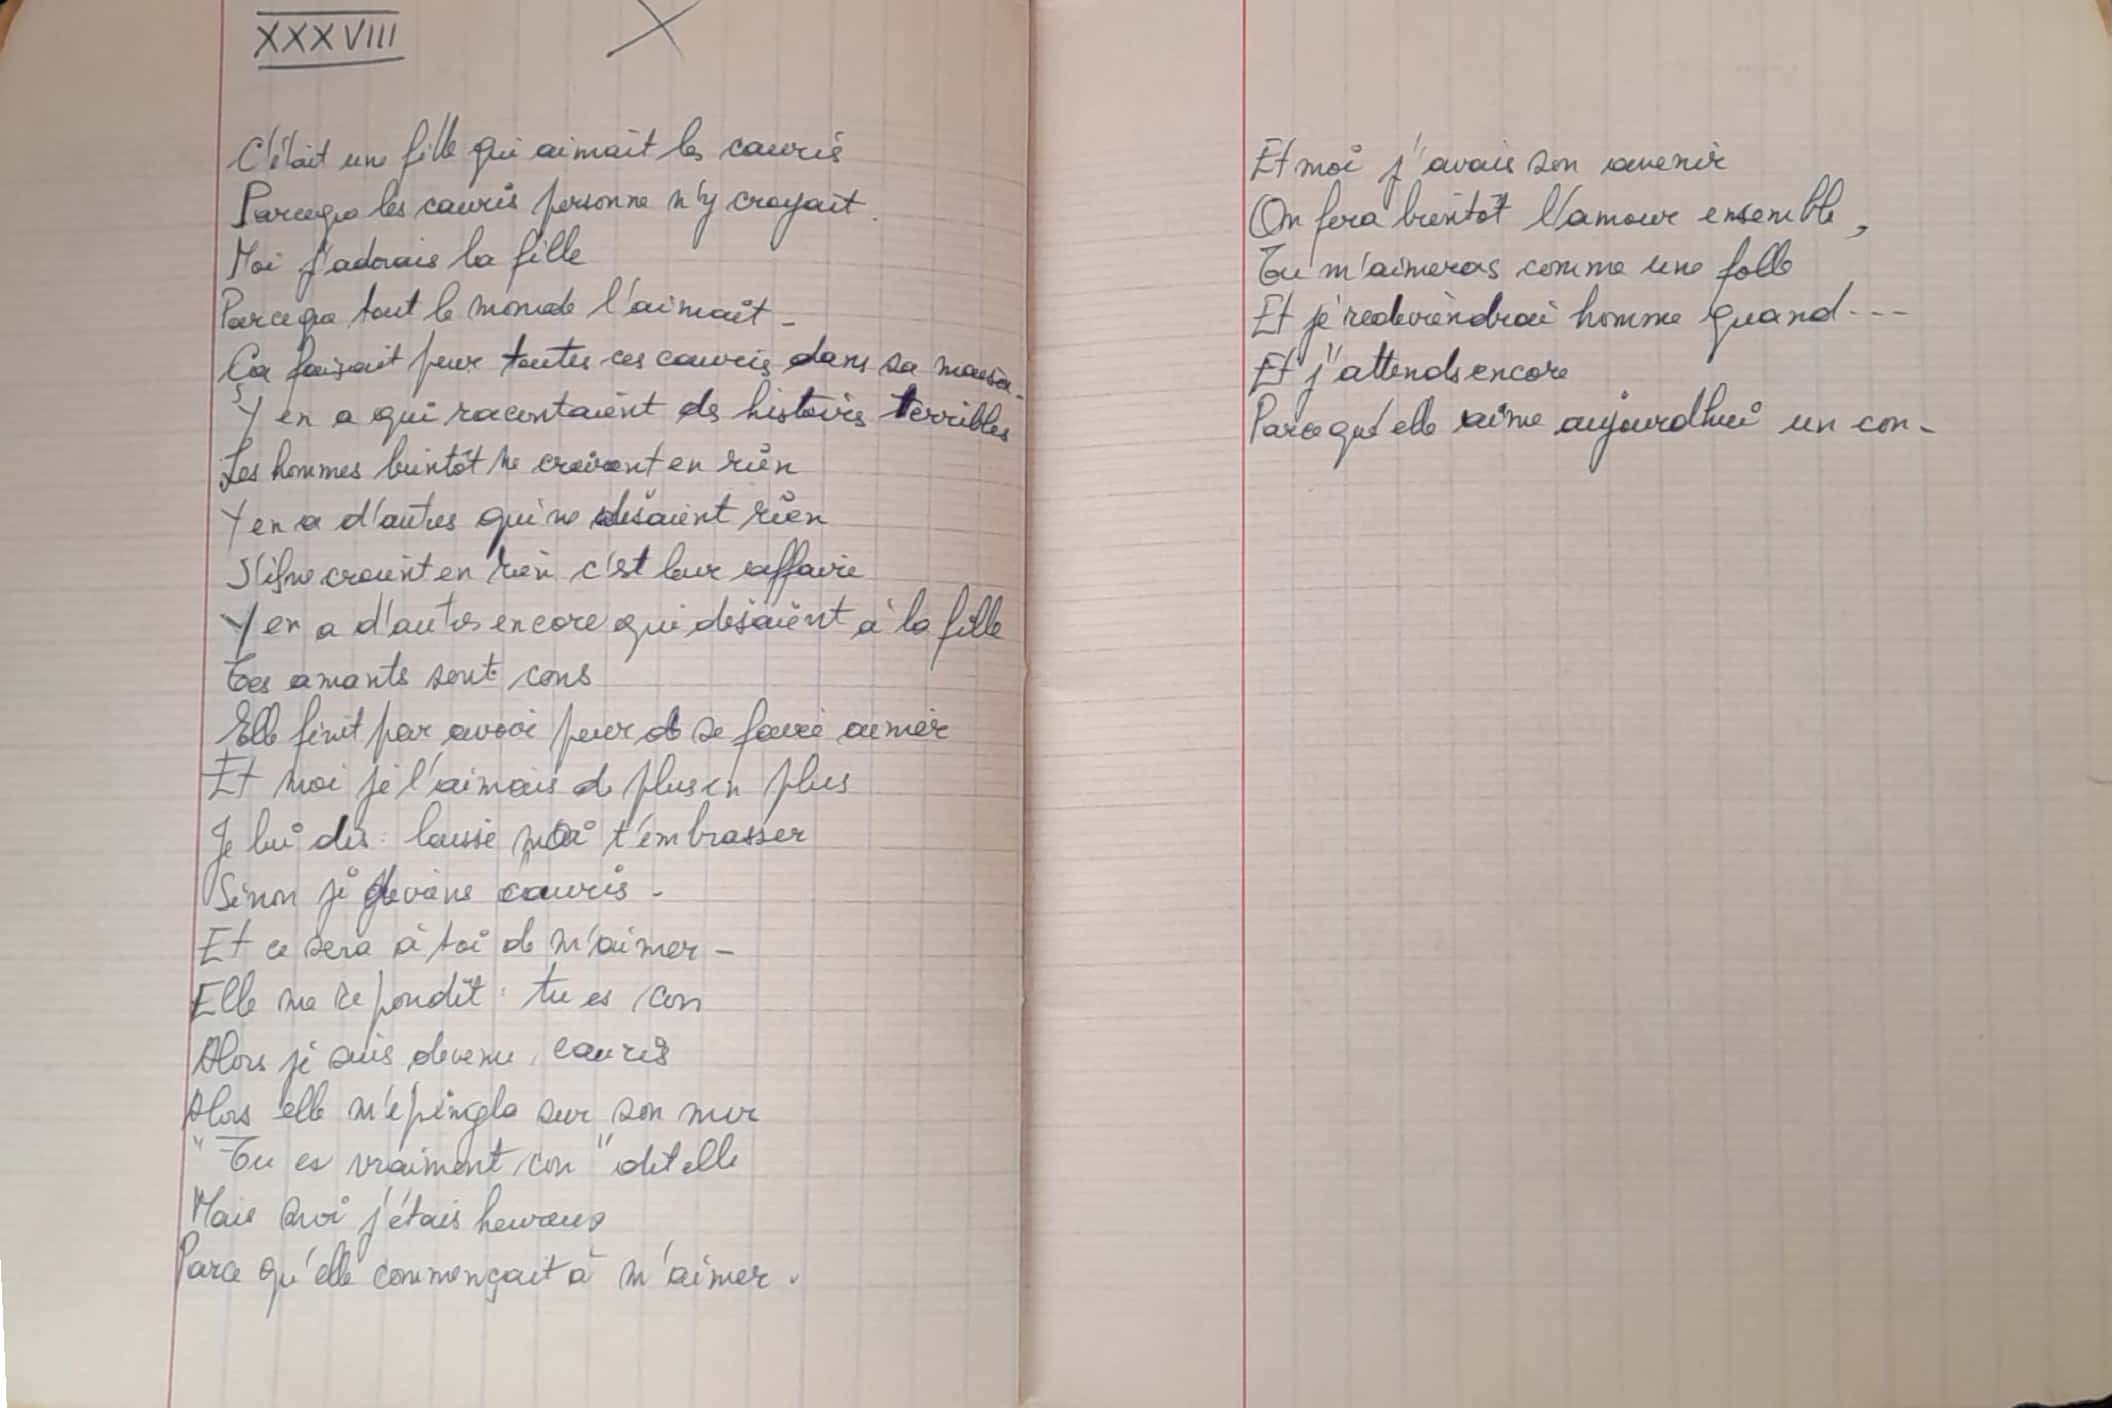 XXXVIII
C'était une fille qui aimait les cauris
Parceque les cauris personne n'y croyait.
Moi j'adorais la fille
Parceque tout le monde l'aimait -
Ça faisait peur toutes ces cauris dans sa maison.
Y en a qui racontaient des histoires terribles
Les hommes bientôt ne croiront en rien
Y en a d'autres qui ne disaient rien
S'ils ne croient en rien c'est leur affaire
Y en a d'autres encore qui disaient à la fille
Tes amants sont cons
Elle finit par avoir peur de se faire aimer
Et moi je l'aimais de plus en plus
Je lui dis : laisse moi t'embrasser
Sinon je deviens cauris -
Et ce sera à toi de m'aimer -
Elle me répondit : tu es con
Alors je suis devenu cauris
Alors elle m'épingla sur son mur
"Tu es vraiment con" dit elle
Mais moi j'étais heureux
Parce qu'elle commençait à m'aimer.
Et moi j'avais son avenir
On fera bientôt l'amour ensemble,
Tu m'aimeras comme une folle
Et je redeviendrai homme quand ---
Et j'attends encore
Parce qu'elle aime aujourdhui un con -